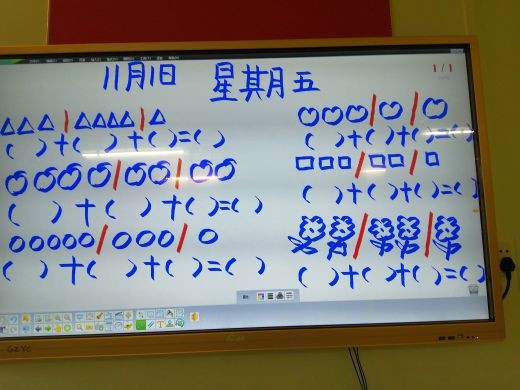 11月1日 星期五
1/1
( )+( )+( )=( )
( )+( )+( )=( )
( )+( )+( )=( )
( )+( )+( )=( )
( )+( )+( )=( )
( )+( )+( )=( )
GZYC